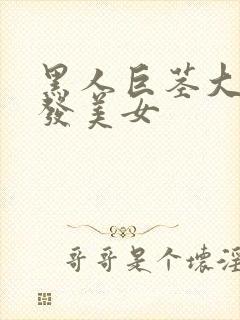 黑人巨茎大
發美女
哥哥是个壞淫